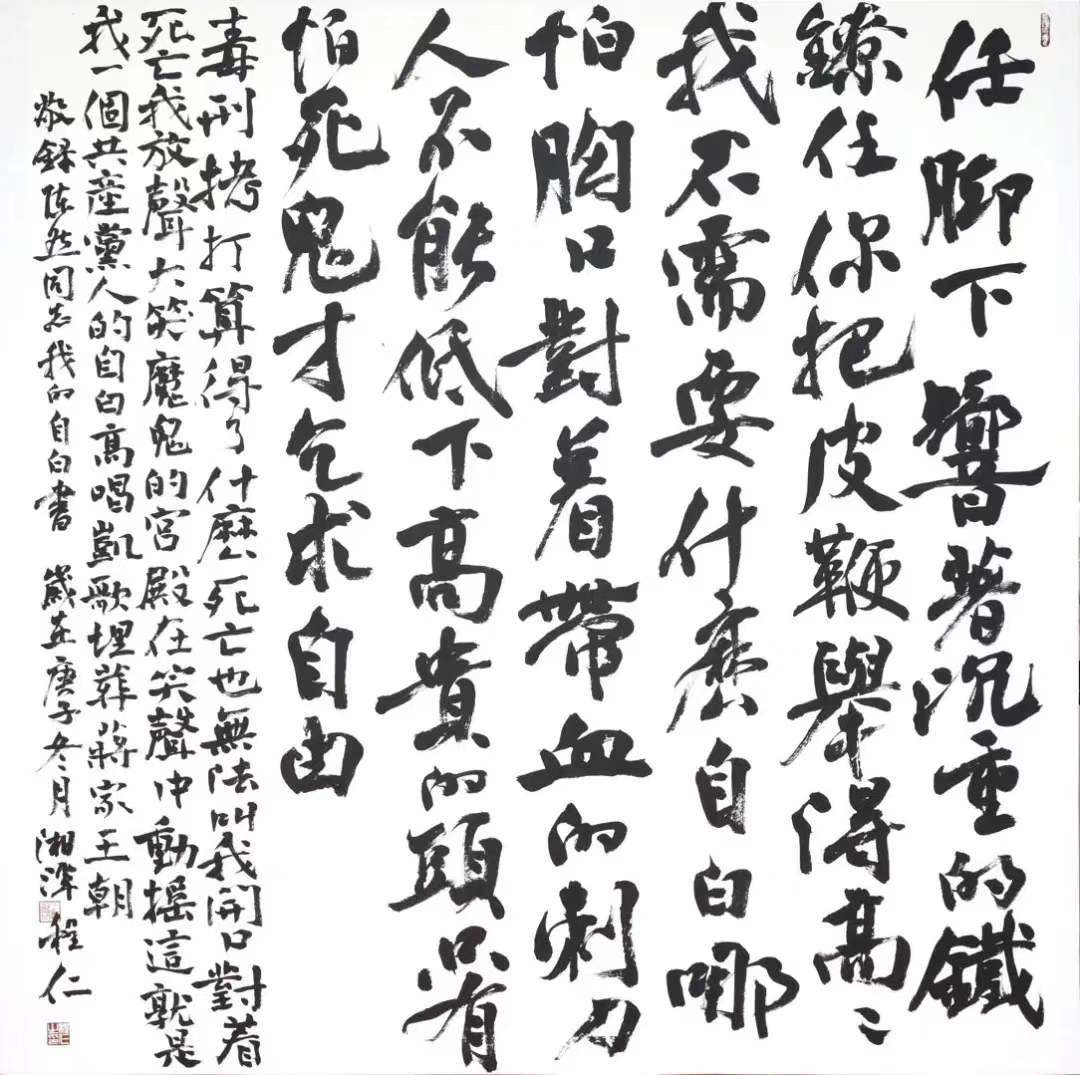 任脚下響著沉重的鐵
鐐任你把皮鞭舉得高〻
我不需要什麽自白哪
怕胸口對着帶血的刺刀
人不能低下高貴的頭只有
怕死鬼才乞求自由
毒刑拷打算得了什麽死亡也無法叫我開口對着
死亡我放聲大笑魔鬼的宫殿在笑聲中動摇這就是
我一個共産黨人的自白高唱凱歌埋葬蔣家王朝
敬録陈然同志我的自白書 歲在庚子冬月湘潭程仁